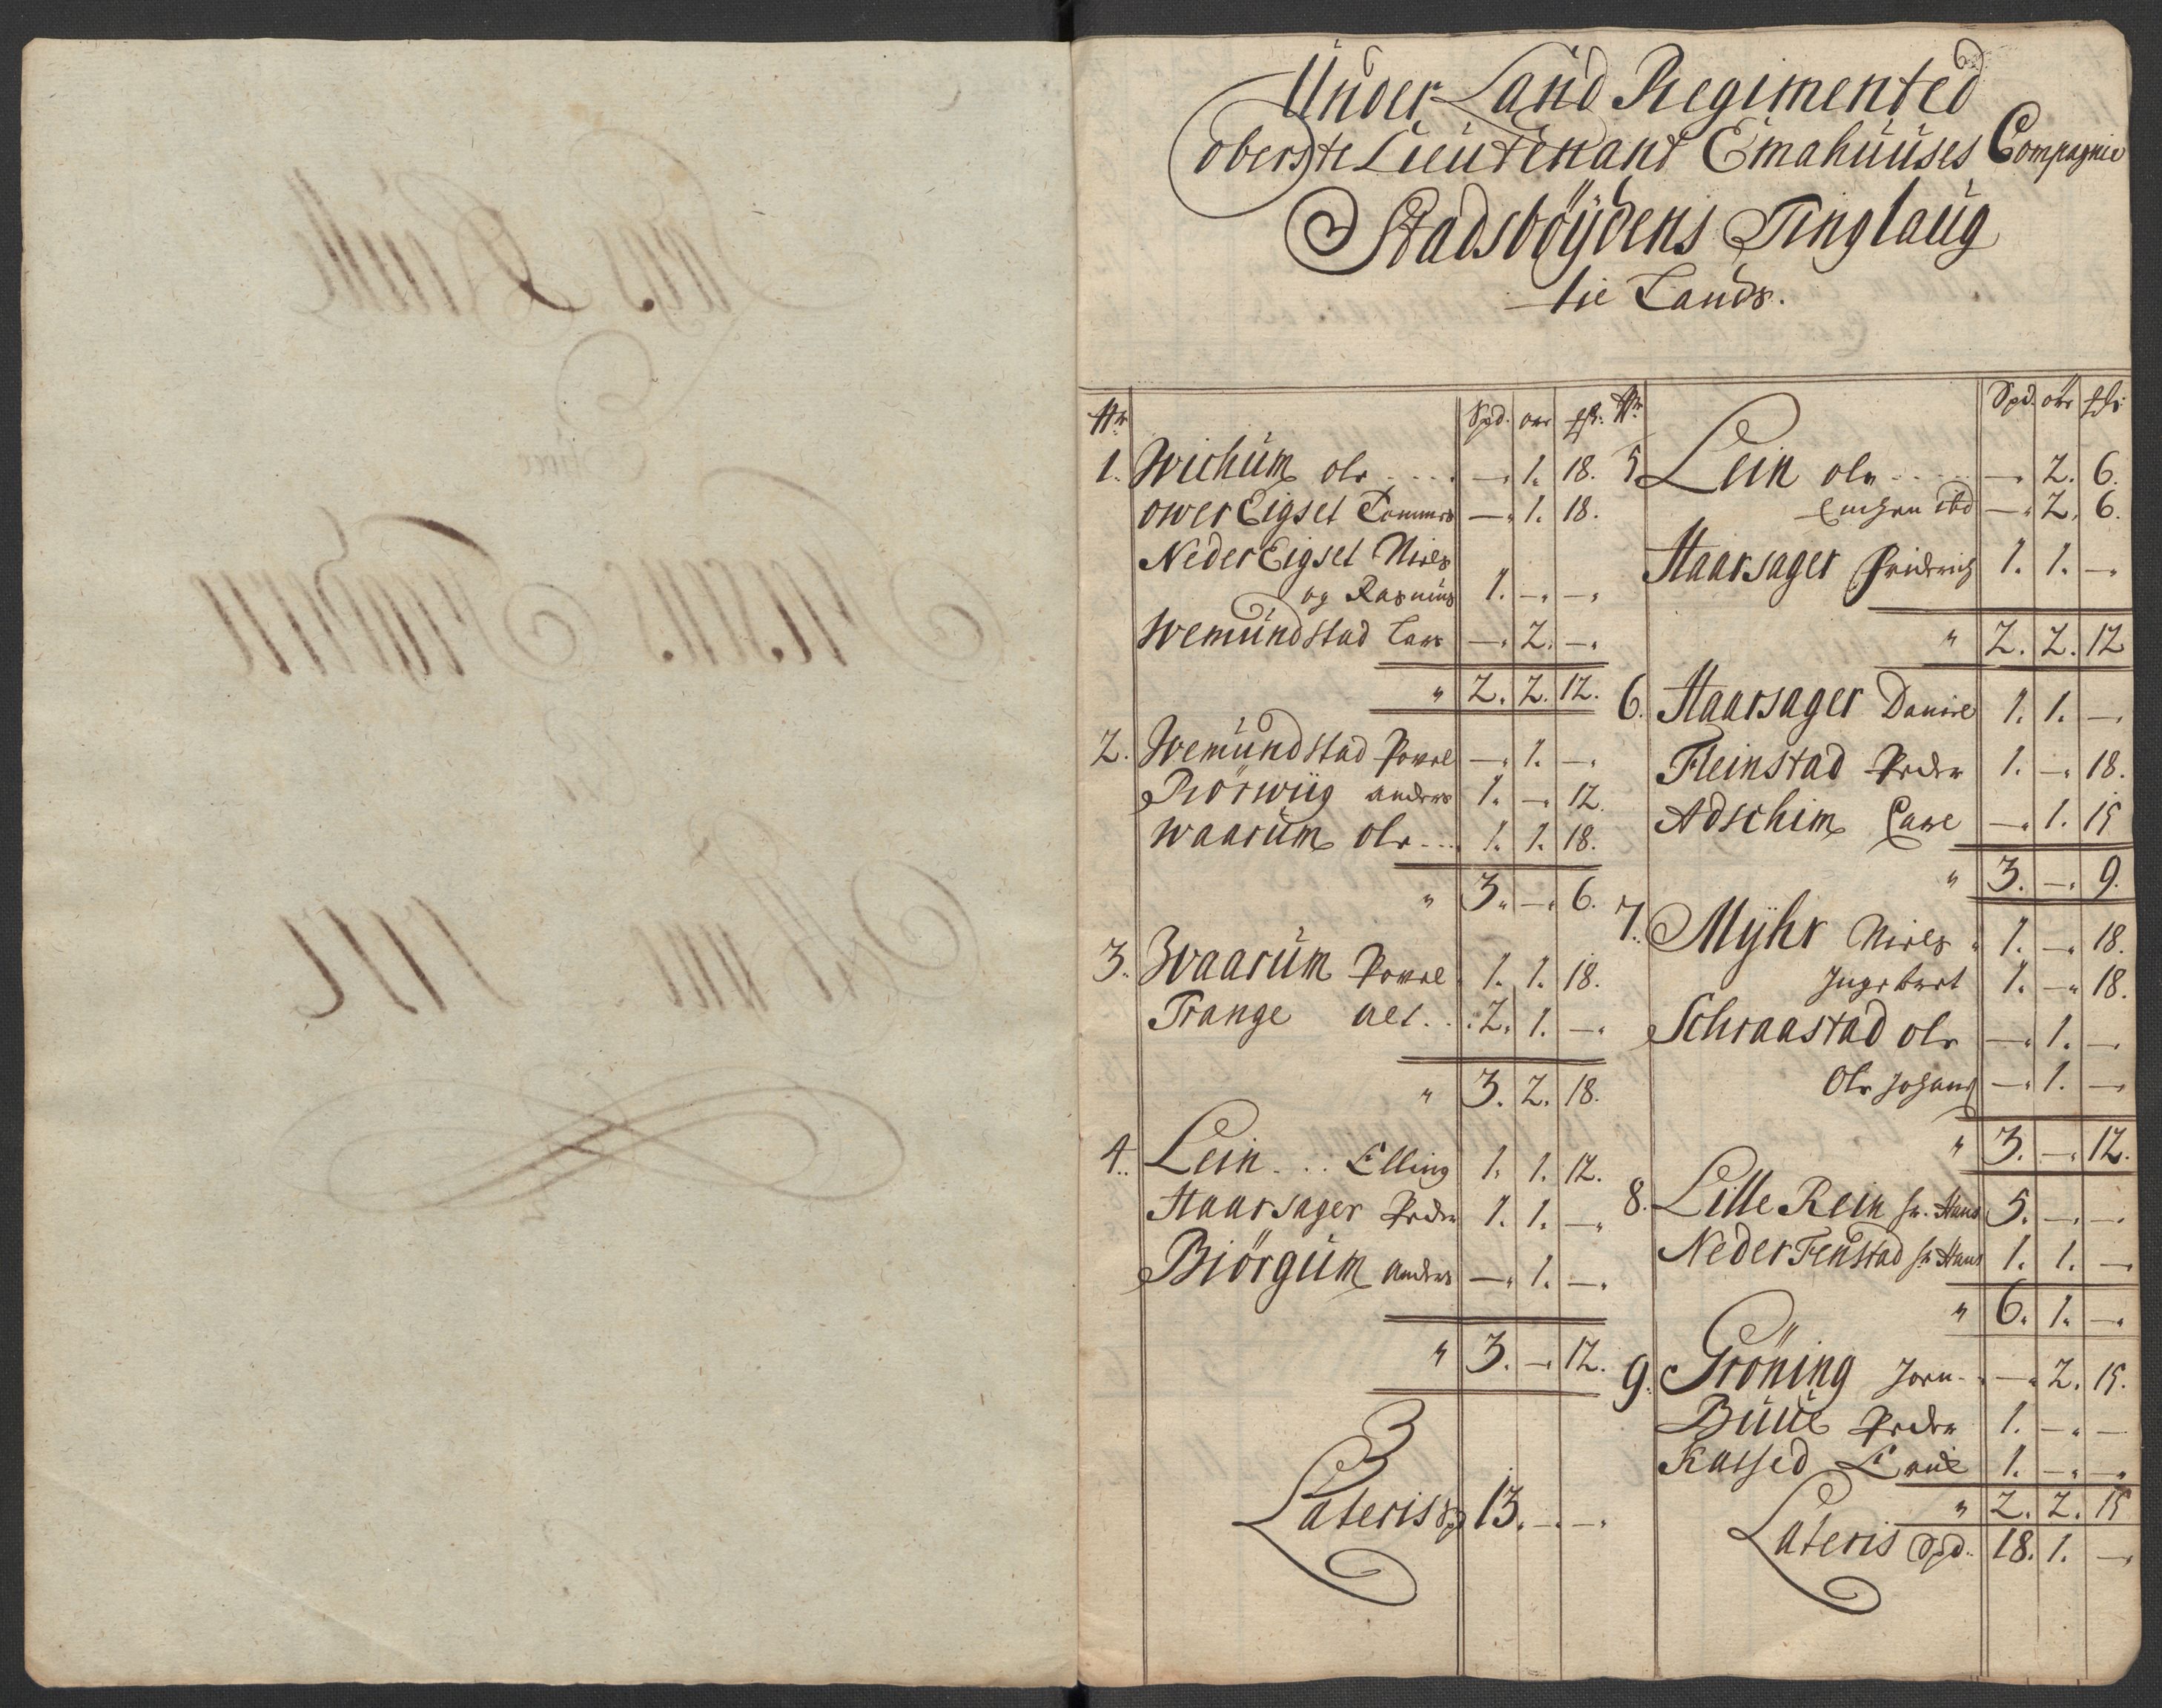 Under Land Regimented
oberste Lieutenant Emahuuses Compagnie
Stadsböÿdens Tinglaug
til Lands.
Nr. Spd. ort ss.
1. Wichum ole .... — 1. 18.
ower Eigset Tommes — 1. 18.
Neder Eigset Niels
og Rasmus 1. — —
Wemundstad Lars — 2. —
" 2. 2. 12.
2. Wemundstad Powel — 1. —
Rörwiig anders 1. — 12.
Waarum ole ... 1. 1. 18.
" 3. — 6.
3. Waarum Powel 1. 1. 18.
Trange ael. .. 2. 1. —
" 3. 2. 18.
4. Lein ... Elling 1. 1. 12.
Haarsager Peder 1. 1. —
Biörgum anders — 1. —
" 3. — 12.
Lateris Spd 13. — —
Nr. Spd. ort ss.
5. Lein ole .... — 2. 6.
ibd — 2. 6.
Haarsager Friderich 1. 1. —
" 2. 2. 12
6. Haarsager Daniel 1. 1. —
Fleinstad Peder 1. — 18.
Adschim — 1. 15
" 3. — 9.
7. Myhr Niels 1. — 18.
Ingebert 1. — 18.
Schraastad ole — 1. —
Ole Johans — 1. —
" 3. — 12.
8. Lille Rein hr. Hans 5. — —
Neder Fenstad hr Hans 1. 1. —
" 6. 1. —
9. Gröning Jorn — 2. 15.
Buue Peder 1. — —
Kassed 1. — —
" 2. 2. 15
Lateris Spd. 18. 1. —